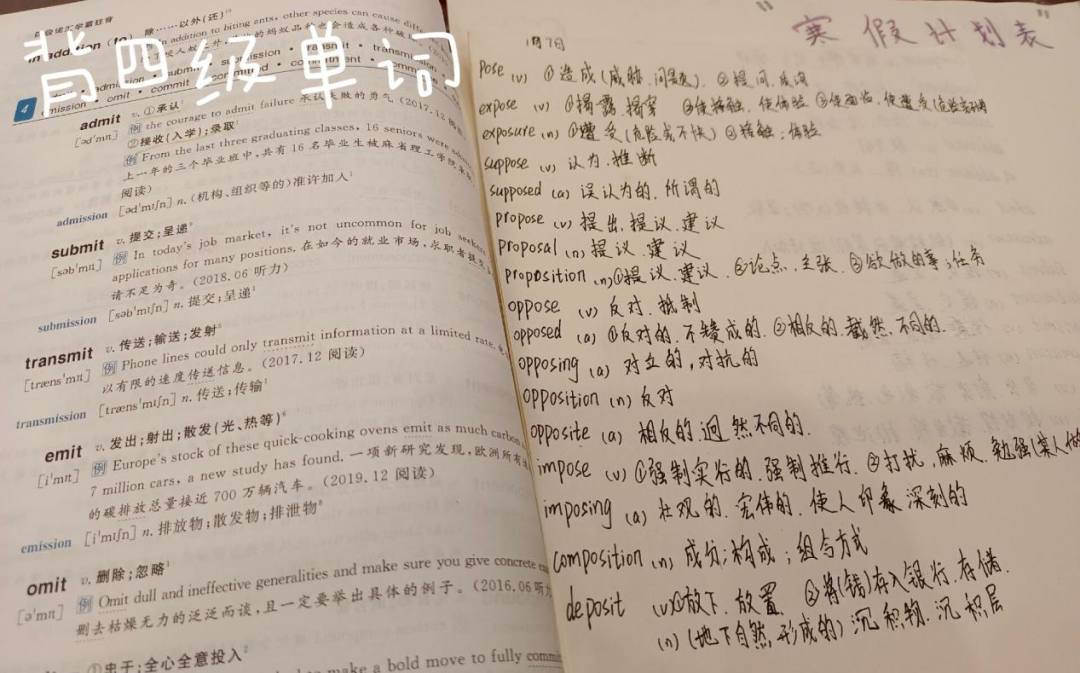 四级词汇学霸狂背
in addition (to) 除……以外(还)
In addition to biting ants, other species can cause
背四级单词
admission · submit · submission · transmit · transmission
emission · omit · commit · committed · commitment
4
admit v. ①承认
[əd'mɪt] 例 the courage to admit failure 承认失败的勇气 (2017.12
②接收(入学);录取
例 From the last three graduating classes, 16 seniors were
上一年的三个毕业班中,共有 16 名毕业生被麻省理工学院
阅读)
admission [əd'mɪʃn] n. (机构、组织等的)准许加入
submit v. 提交;呈递
[səb'mɪt] 例 In today's job market, it's not uncommon for job seekers
applications for many positions. 在如今的就业市场,求职者提交
请不足为奇。(2018.06 听力)
submission [səb'mɪʃn] n. 提交;呈递
transmit v. 传送;输送;发射
[træns'mɪt] 例 Phone lines could only transmit information at a limited rate.
以有限的速度传送信息。(2017.12 阅读)
transmission [træns'mɪʃn] n. 传送;传输
emit v. 发出;射出;散发(光、热等)
[i'mɪt] 例 Europe's stock of these quick-cooking ovens emit as much carbon
7 million cars, a new study has found. 一项新研究发现,欧洲所有
的碳排放总量接近 700 万辆汽车。(2019.12 阅读)
emission [i'mɪʃn] n. 排放物;散发物;排泄物
omit v. 删除;忽略
[ə'mɪt] 例 Omit dull and ineffective generalities and make sure you give concrete
删去枯燥无力的泛泛而谈,且一定要举出具体的例子。(2016.06 听力
①忠于;全心全意投入
make a bold move to fully
"寒假计划表"
1月7日
pose (v) ①造成(威胁.问题) ②提问.质询
expose (v) ①揭露.揭穿 ②使接触.使体验 ③使面临.使遭受(危险或不快
exposure (n) ①遭受(危险或不快) ②接触;体验
suppose (v) 认为.推断
supposed (a) 误认为的.所谓的
propose (v) 提出.提议.建议
proposal (n) 提议.建议
proposition (n) ①提议.建议 ②论点.主张 ③欲做的事;任务
oppose (v) 反对.抵制
opposed (a) ①反对的.不赞成的. ②相反的.截然.不同的.
opposing (a) 对立的,对抗的
opposition (n) 反对
opposite (a) 相反的.迥然不同的.
impose (v) ①强制实行的.强制推行. ②打扰.麻烦.勉强(某人做
imposing (a) 壮观的.宏伟的.使人印象深刻的
composition (n) 成分;构成;组合方式
deposit (v) ①放下.放置 ②将(钱)存入银行.存储.
(n) (地下自然形成的)沉积物.沉积层